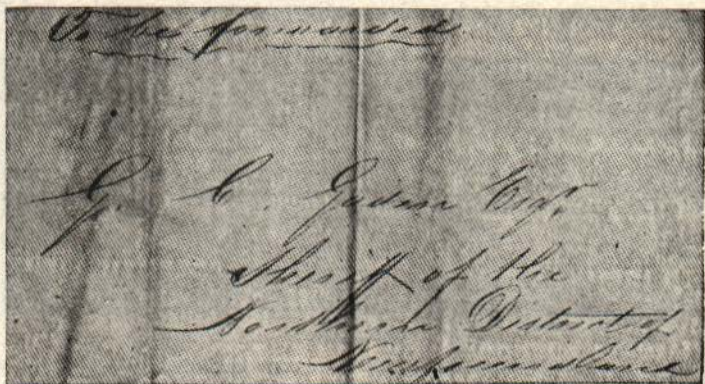 To be forwarded
G. C. Gaden Esqr.
Sheriff of the
Northern District of
Newfoundland